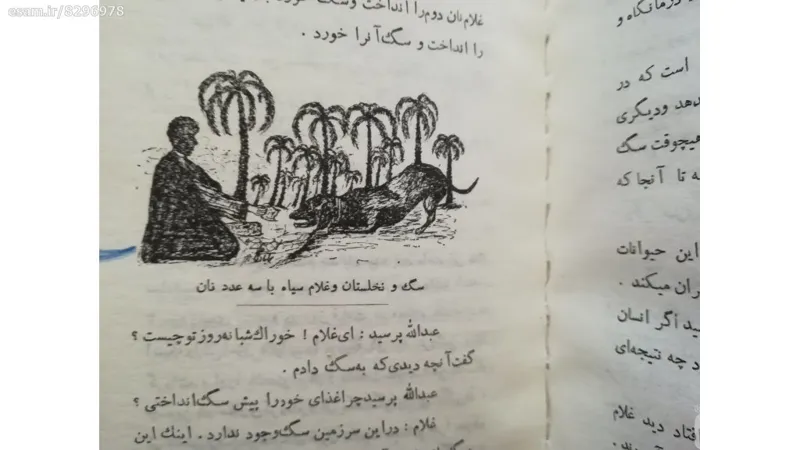 esam.ir/8296978
غلام نان دوم را انداخت و سگ
را انداخت و سگ آنرا خورد .
سگ و نخلستان و غلام سیاه با سه عدد نان
عبدالله پرسید : ای غلام ! خوراک شبانه روز تو چیست ؟
گفت آنچه دیدی که به سگ دادم .
عبدالله پرسید چرا غذای خود را پیش سگ انداختی ؟
غلام : در این سرزمین سگ وجود ندارد . اینک این
است که در
دهد و دیگری
هیچوقت سگ
تا آنجا که
این حیوانات
میکند .
اگر انسان
چه نتیجه‌ای
دید غلام